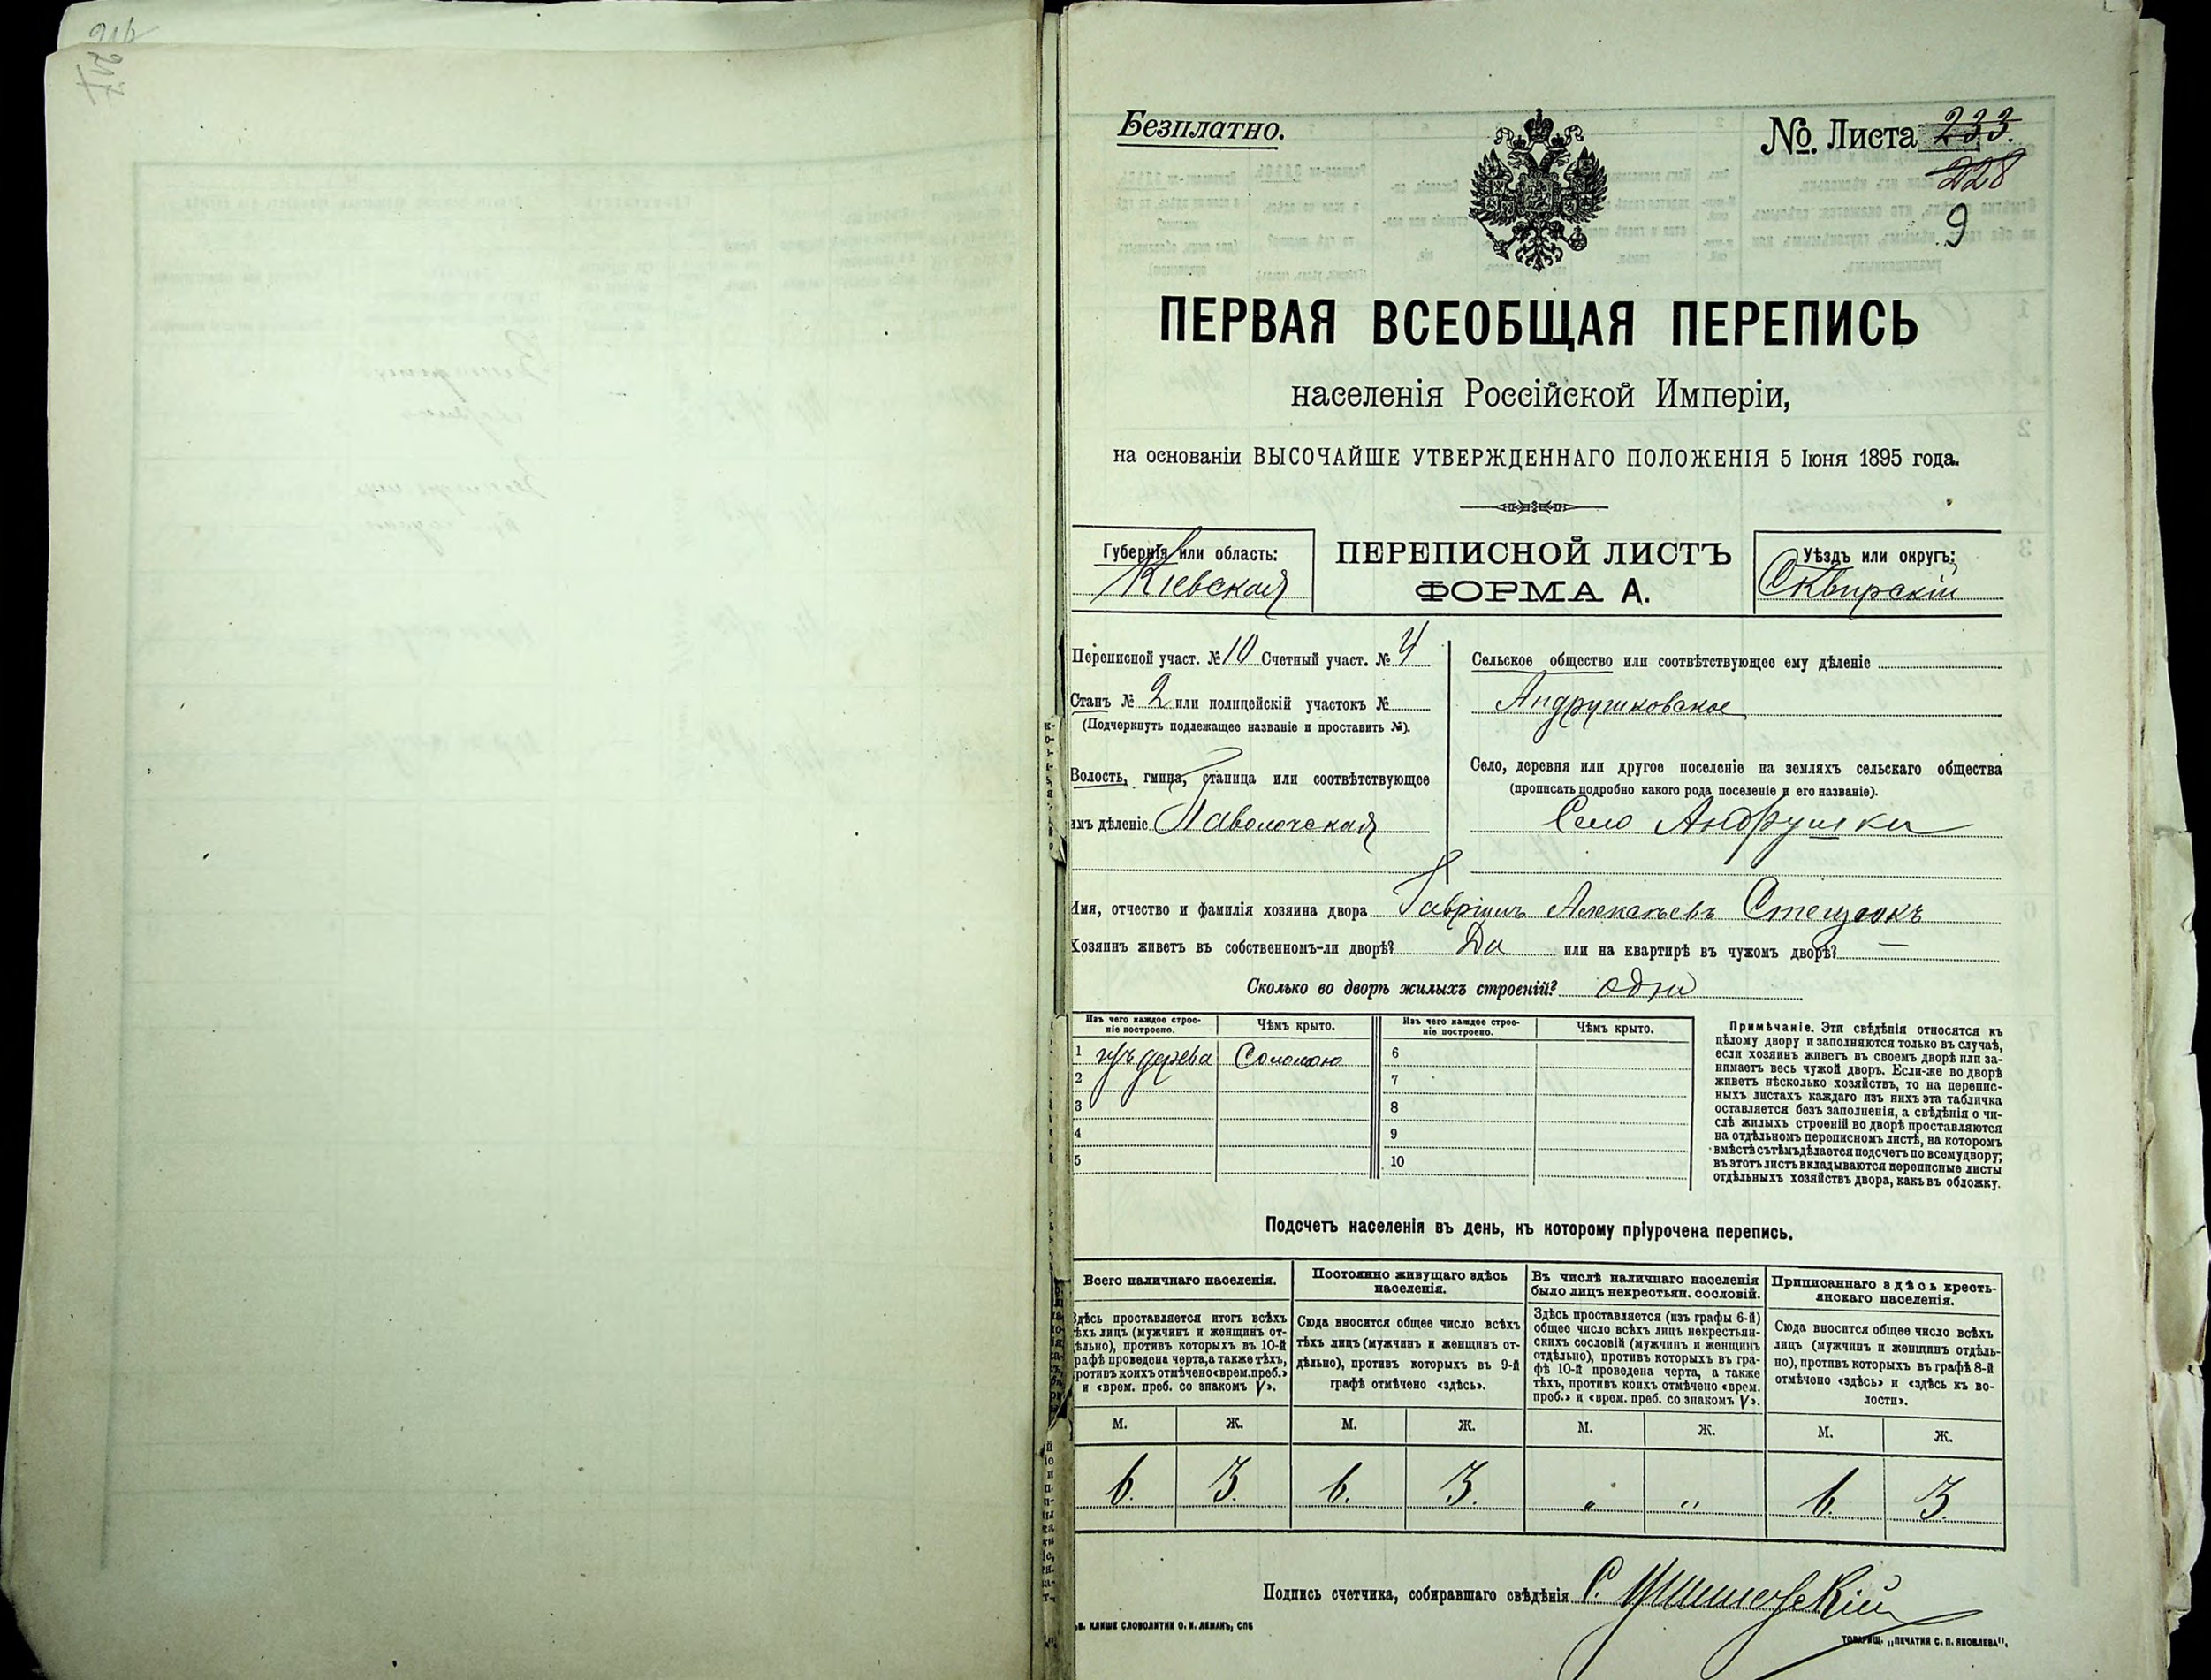 217
Безплатно.
№. Листа 233.
228
9
ПЕРВАЯ ВСЕОБЩАЯ ПЕРЕПИСЬ
населенія Россійской Имперіи,
на основаніи ВЫСОЧАЙШЕ УТВЕРЖДЕННАГО ПОЛОЖЕНІЯ 5 Іюня 1895 года.
Губернія или область:
Кіевская
ПЕРЕПИСНОЙ ЛИСТЪ
ФОРМА А.
Уѣздъ или округъ:
Сквирскій
Переписной участ. № 10 Счетный участ. № 4
Станъ № 2 или полицейскій участокъ №
(Подчеркнуть подлежащее названіе и проставить №).
Волость, гмина, станица или соотвѣтствующее
имъ дѣленіе Паволочская
Сельское общество или соотвѣтствующее ему дѣленіе
Андрушковское
Село, деревня или другое поселеніе на земляхъ сельскаго общества
(прописать подробно какого рода поселеніе и его названіе).
Село Андрушки
Имя, отчество и фамилія хозяина двора Гавріилъ Алексѣевъ Стецюкъ
Хозяинъ живетъ въ собственномъ-ли дворѣ? Да или на квартирѣ въ чужомъ дворѣ? —
Сколько во дворѣ жилыхъ строеній? одно
Изъ чего каждое строе-
ніе построено.
Чѣмъ крыто.
Изъ чего каждое строе-
ніе построено.
Чѣмъ крыто.
1 изъ дерева Соломою 6
2 7
3 8
4 9
5 10
Примѣчаніе. Эти свѣдѣнія относятся къ
цѣлому двору и заполняются только въ случаѣ,
если хозяинъ живетъ въ своемъ дворѣ или за-
нимаетъ весь чужой дворъ. Если-же во дворѣ
живетъ нѣсколько хозяйствъ, то на перепис-
ныхъ листахъ каждаго изъ нихъ эта табличка
оставляется безъ заполненія, а свѣдѣнія о чи-
слѣ жилыхъ строеній во дворѣ проставляются
на отдѣльномъ переписномъ листѣ, на которомъ
вмѣстѣ съ тѣмъ дѣлается подсчетъ по всему двору;
въ этотъ листъ вкладываются переписные листы
отдѣльныхъ хозяйствъ двора, какъ въ обложку.
Подсчетъ населенія въ день, къ которому пріурочена перепись.
Всего наличнаго населенія.
Здѣсь проставляется итогъ всѣхъ
тѣхъ лицъ (мужчинъ и женщинъ от-
дѣльно), противъ которыхъ въ 10-й
графѣ проведена черта, а также тѣхъ,
противъ коихъ отмѣчено «врем. преб.»
и «врем. преб. со знакомъ V».
Постоянно живущаго здѣсь
населенія.
Сюда вносится общее число всѣхъ
тѣхъ лицъ (мужчинъ и женщинъ от-
дѣльно), противъ которыхъ въ 9-й
графѣ отмѣчено «здѣсь».
Въ числѣ наличнаго населенія
было лицъ некрестьян. сословій.
Здѣсь проставляется (изъ графы 6-й)
общее число всѣхъ лицъ некрестьян-
скихъ сословій (мужчинъ и женщинъ
отдѣльно), противъ которыхъ въ гра-
фѣ 10-й проведена черта, а также
тѣхъ, противъ коихъ отмѣчено «врем.
преб.» и «врем. преб. со знакомъ V».
Приписаннаго здѣсь кресть-
янскаго населенія.
Сюда вносится общее число всѣхъ
лицъ (мужчинъ и женщинъ отдѣль-
но), противъ которыхъ въ графѣ 8-й
отмѣчено «здѣсь» и «здѣсь къ во-
лости».
М. Ж. М. Ж. М. Ж. М. Ж.
6. 3. 6. 3. " " 6. 3.
Подпись счетчика, собиравшаго свѣдѣнія С.
КЛИШЕ СЛОВОЛИТНИ О. И. ЛЕМАНЪ, СПБ
ТОВАРИЩ. „ПЕЧАТНЯ С. П. ЯКОВЛЕВА".